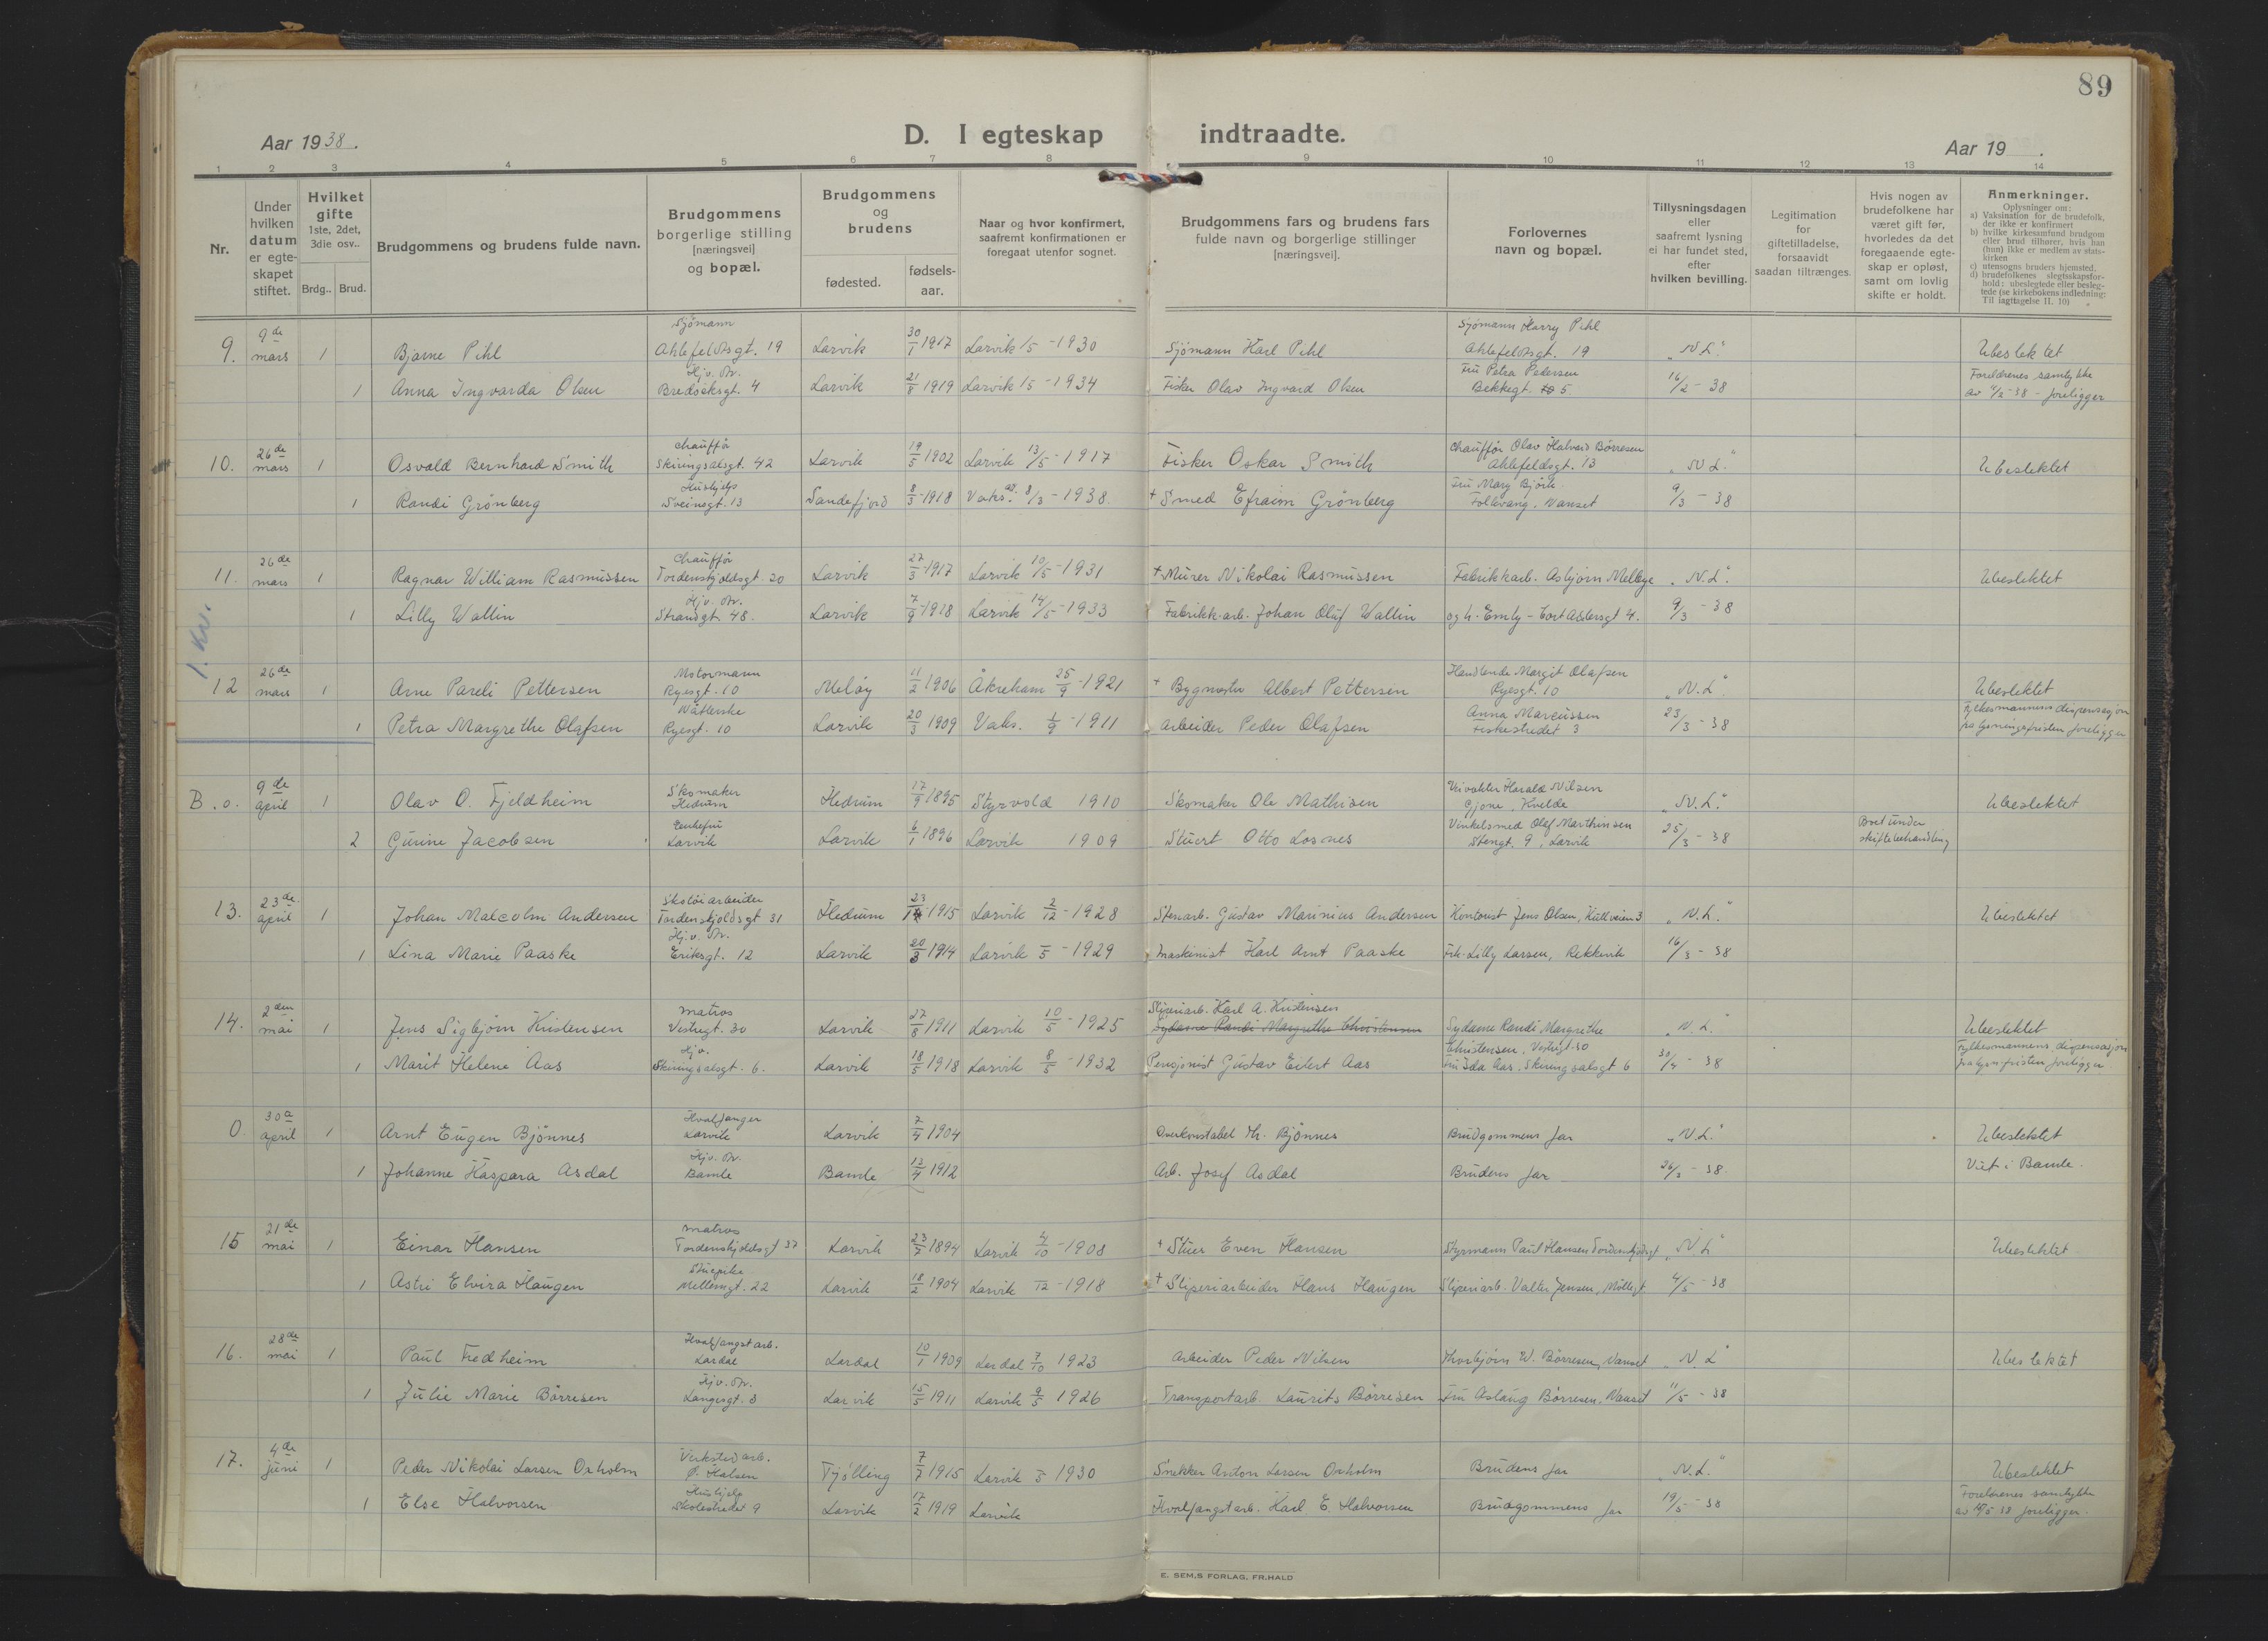 89
Aar 1938.
D. I egteskap indtraadte.
Aar 19 .
1 2 3 4 5 6 7 8 9 10 11 12 13 14
Nr.
Under hvilken datum er egteskapet stiftet.
Hvilket gifte 1ste, 2det, 3die osv..
Brdg.. Brud.
Brudgommens og brudens fulde navn.
Brudgommens borgerlige stilling [næringsvei] og bopæl.
Brudgommens og brudens
fødested.
fødsels-aar.
Naar og hvor konfirmert, saafremt konfirmationen er foregaat utenfor sognet.
Brudgommens fars og brudens fars fulde navn og borgerlige stillinger [næringsvei].
Forlovernes navn og bopæl.
Tillysningsdagen eller saafremt lysning ei har fundet sted, efter hvilken bevilling.
Legitimation for giftetilladelse, forsaavidt saadan tiltrænges.
Hvis nogen av brudefolkene har været gift før, hvorledes da det foregaaende egteskap er opløst, samt om lovlig skifte er holdt.
Anmerkninger.
Oplysninger om:
a) Vaksination for de brudefolk, der ikke er konfirmert
b) hvilke kirkesamfund brudgom eller brud tilhører, hvis han (hun) ikke er medlem av statskirken
c) utensogns bruders hjemsted.
d) brudefolkenes slegtsskapsforhold: ubeslegtede eller beslegtede (se kirkebokens indledning: Til iagttagelse II. 10)
9. 9de mars 1 Bjarne Pihl Sjømann Ahlefeldtsgt. 19 Larvik 30/1 1917 Larvik /5 - 1930 Sjømann Karl Pihl Sjømann Harry Pihl Ahlefeldtsgt. 19 "N.L." Ubeslektet
1 Anna Ingvarda Olsen Hj.v. Dr. Bredoeksgt. 4 Larvik 21/8 1919 Larvik /5 - 1934 Fisker Olav Ingvard Olsen Fru Petra Pedersen Bekkegt. 5. 16/2 - 38 Foreldrenes samtykke av /2 - 38 - foreligger
10. 26de mars 1 Osvald Bernhard Smith Chauffør Skiringsalsgt. 42 Larvik 19/5 1902 Larvik 13/5 - 1917 Fisker Oskar Smith Chauffør Olav Halvard Børresen Ahlefeldsgt. 13 "N.L." Ubeslektet
1 Randi Grønberg Hushjelp Sveinsgt. 13 Sandefjord 8/3 - 1918 Vaks. 8/3 - 1938 + Smed Efraim Grønberg Fru Mary Bjørk Follevang, Nanset 9/3 - 38
11. 26de mars 1 Ragnar William Rasmussen Chauffør Tordenskjoldsgt. 20 Larvik 27/3 1917 Larvik 10/5 - 1931 + Murer Nikolai Rasmussen Fabrikkarb. Asbjørn Mellbye "N.L." Ubeslektet
1 Lilly Wallin Hj.v. Dr. Strandgt. 48. Larvik 7/9 - 1918 Larvik 14/5 - 1933 Fabrikk-arb. Johan Oluf Wallin og h. Emly - Cort Adelersgt 4. 9/3 - 38
1. Kv.
12 26de mars 1 Arne Pareli Pettersen Motormann Ryesgt. 10 Meløy 11/2 1906 Åkreham 25/9 - 1921 + Bygmester Albert Pettersen Handlende Margit Olafsen Ryesgt. 10 "N.L." Ubeslektet
1 Petra Margrethe Olafsen Ryesgt. 10 Larvik 20/3 1909 Vaks. 1/9 - 1911 Arbeider Peder Olafsen Anna Marcussen Fiskestredet 3 23/3 - 38 Fylkesmannens dispensasjon fra lysningsfristen foreligger
B.o. 9de april 1 Olav O. Fjeldheim Skomaker Hedrum Hedrum 17/9 1895 Styrvold 1910 Skomaker Ole Mathisen Veivokter Harald Nilsen Gjone, Kvelde "N.L." Ubeslektet
2 Gurine Jacobsen Enkefru Larvik Larvik 6/1 1896 Larvik 1909 Stuert Otto Losnes Vinkelsmed Olaf Marthinsen Stengt. 9, Larvik 25/3 - 38 Boet under skiftebehandling
13. 23de april 1 Johan Malcolm Andersen Skotøiarbeider Tordenskjoldsgt 31 Hedrum 23/ 1915 Larvik 2/12 - 1928 Stenarb. Gustav Marinius Andersen Kontorist Jens Olsen, Kullveien 3 "N.L." Ubeslektet
1 Lina Marie Paaske Hj.v. Dr. Eriksgt. 12 Larvik 20/3 1914 Larvik /5 - 1929 Maskinist Karl Arnt Paaske Frk. Lilly Larsen, Rekkevik 16/3 - 38
14. 2den mai 1 Jens Sigbjørn Kristensen Matros Vestregt. 30 Larvik 27/8 1911 Larvik 10/5 - 1925 Sliperiarb. Karl A. Kristensen Sydame Randi Margrethe Christensen Sydame Randi Margrethe Christensen, Vestregt. 30 "N.L." Ubeslektet
1 Marit Helene Aas Hj.v. Skiringsalsgt. 6. Larvik 18/5 1918 Larvik 8/5 - 1932 Pensjonist Gustav Eilert Aas Fru Ida Aas. Skiringsalsgt 6 30/4 - 38 Fylkesmannens dispensasjon fra lysn.fristen foreligger.
O. 30te april 1 Arnt Eugen Bjønnes Hvalfanger Larvik Larvik 7/4 1904 Overkonstabel Th. Bjønnes Brudgommens far "N.L." Ubeslektet
1 Johanne Kaspara Asdal Hj.v. Dr. Bamle Bamle 13/4 1912 Arb. Josef Asdal Brudens far 26/3 - 38. Viet i Bamle.
15 21de mai 1 Einar Hansen Matros Tordenskjoldsgt 37 Larvik 23/7 1894 Larvik 4/10 - 1908 + Stuer Even Hansen Styrmann Paul Hansen Tordenskjoldsgt "N.L" Ubeslektet
1 Astri Elvira Haugen Stuepike Mellemgt. 22 Larvik 18/2 1904 Larvik /12 - 1918 + Sliperiarbeider Hans Haugen Sliperiarb. Valter Jensen, Møllegt. 4/5 - 38
16. 28de mai 1 Paul Fredheim Hvalfangstarb. Lardal Lardal 10/1 1909 Lardal 7/10 1923 Arbeider Peder Nilsen Thorbjørn W. Børresen, Nanset "N.L" Ubeslektet
1 Julie Marie Børresen Hj.v. Dr. Langesgt. 8 Larvik 15/5 1911 Larvik 9/5 1926 Transportarb. Laurits Børresen Fru Aslaug Børresen, Nanset 11/5 - 38
17. 4de juni 1 Peder Nikolai Larsen Oxholm Verkstedarb. Ø. Halsen Tjølling 7/7 1915 Larvik /5 1930 Snekker Anton Larsen Oxholm Brudens far "N.L." Ubeslektet
1 Else Halvorsen Hushjelp Skolestredet 9 Larvik 17/2 1919 Larvik Hvalfangstarb. Karl E. Halvorsen Brudgommens far 19/5 - 38 Foreldrenes samtykke av /5 38 foreligger.
E. SEM,S FORLAG, FR.HALD